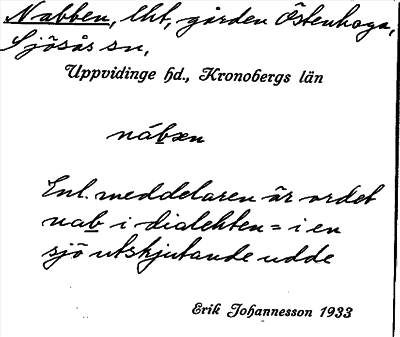 Nabben, lht, gården Östenhaga,
Sjösås sn,
Uppvidinge hd., Kronobergs län
nábxn
Enl. meddelaren är ordet
nab i dialekten = i en
sjö utskjutande udde
Erik Johannesson 1933